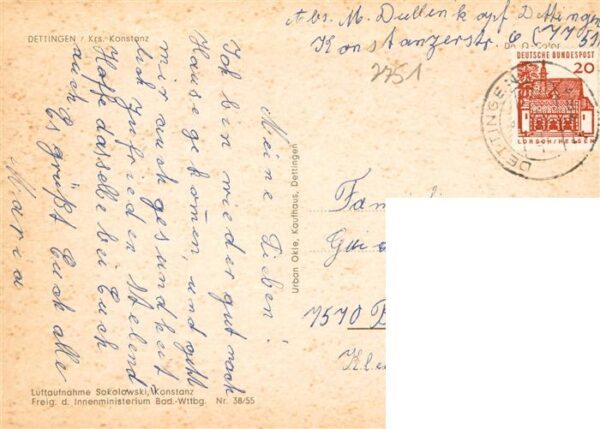 DETTINGEN / Krs. Konstanz
Abs. M. Dullenkopf Dettingen
Konstanzerstr. 6 (7751
2751
DEUTSCHE BUNDESPOST
20
LORSCH/HESSEN
DETTINGEN
Meine Lieben!
Ich bin wieder gut nach
Hause gekomen, und geht
mir auch gesundheit
lich zufrieden stelend
Hoffe dasselbe bei Euch
auch.
Es grüßt Euch alle
Maria
Urban Okle, Kaufhaus, Dettingen
Fam
7570 B
Luftaufnahme Sokolowski, Konstanz
Freig. d. Innenministerium Bad.-Wttbg. Nr. 38/55